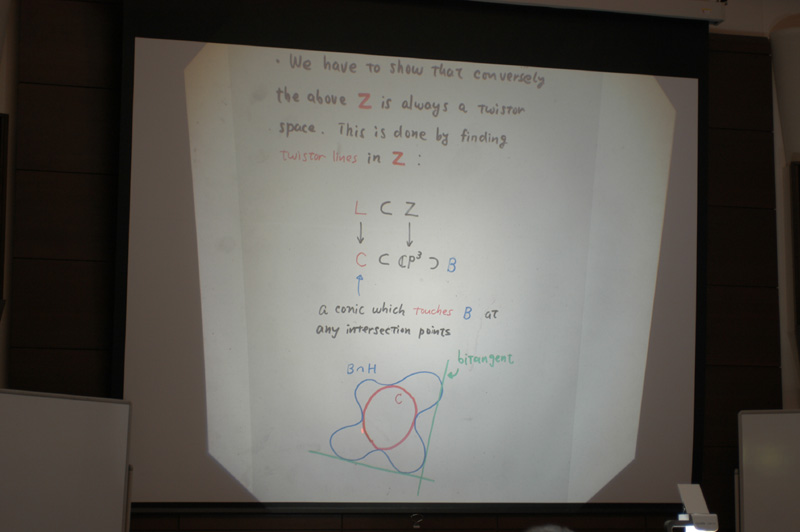 · We have to show that conversely
the above Z is always a twistor
space. This is done by finding
twistor lines in Z :
L ⊂ Z
↓ ↓
C ⊂ ℂP³ ⊃ B
↑
a conic which touches B at
any intersection points
bitangent
B∩H
C